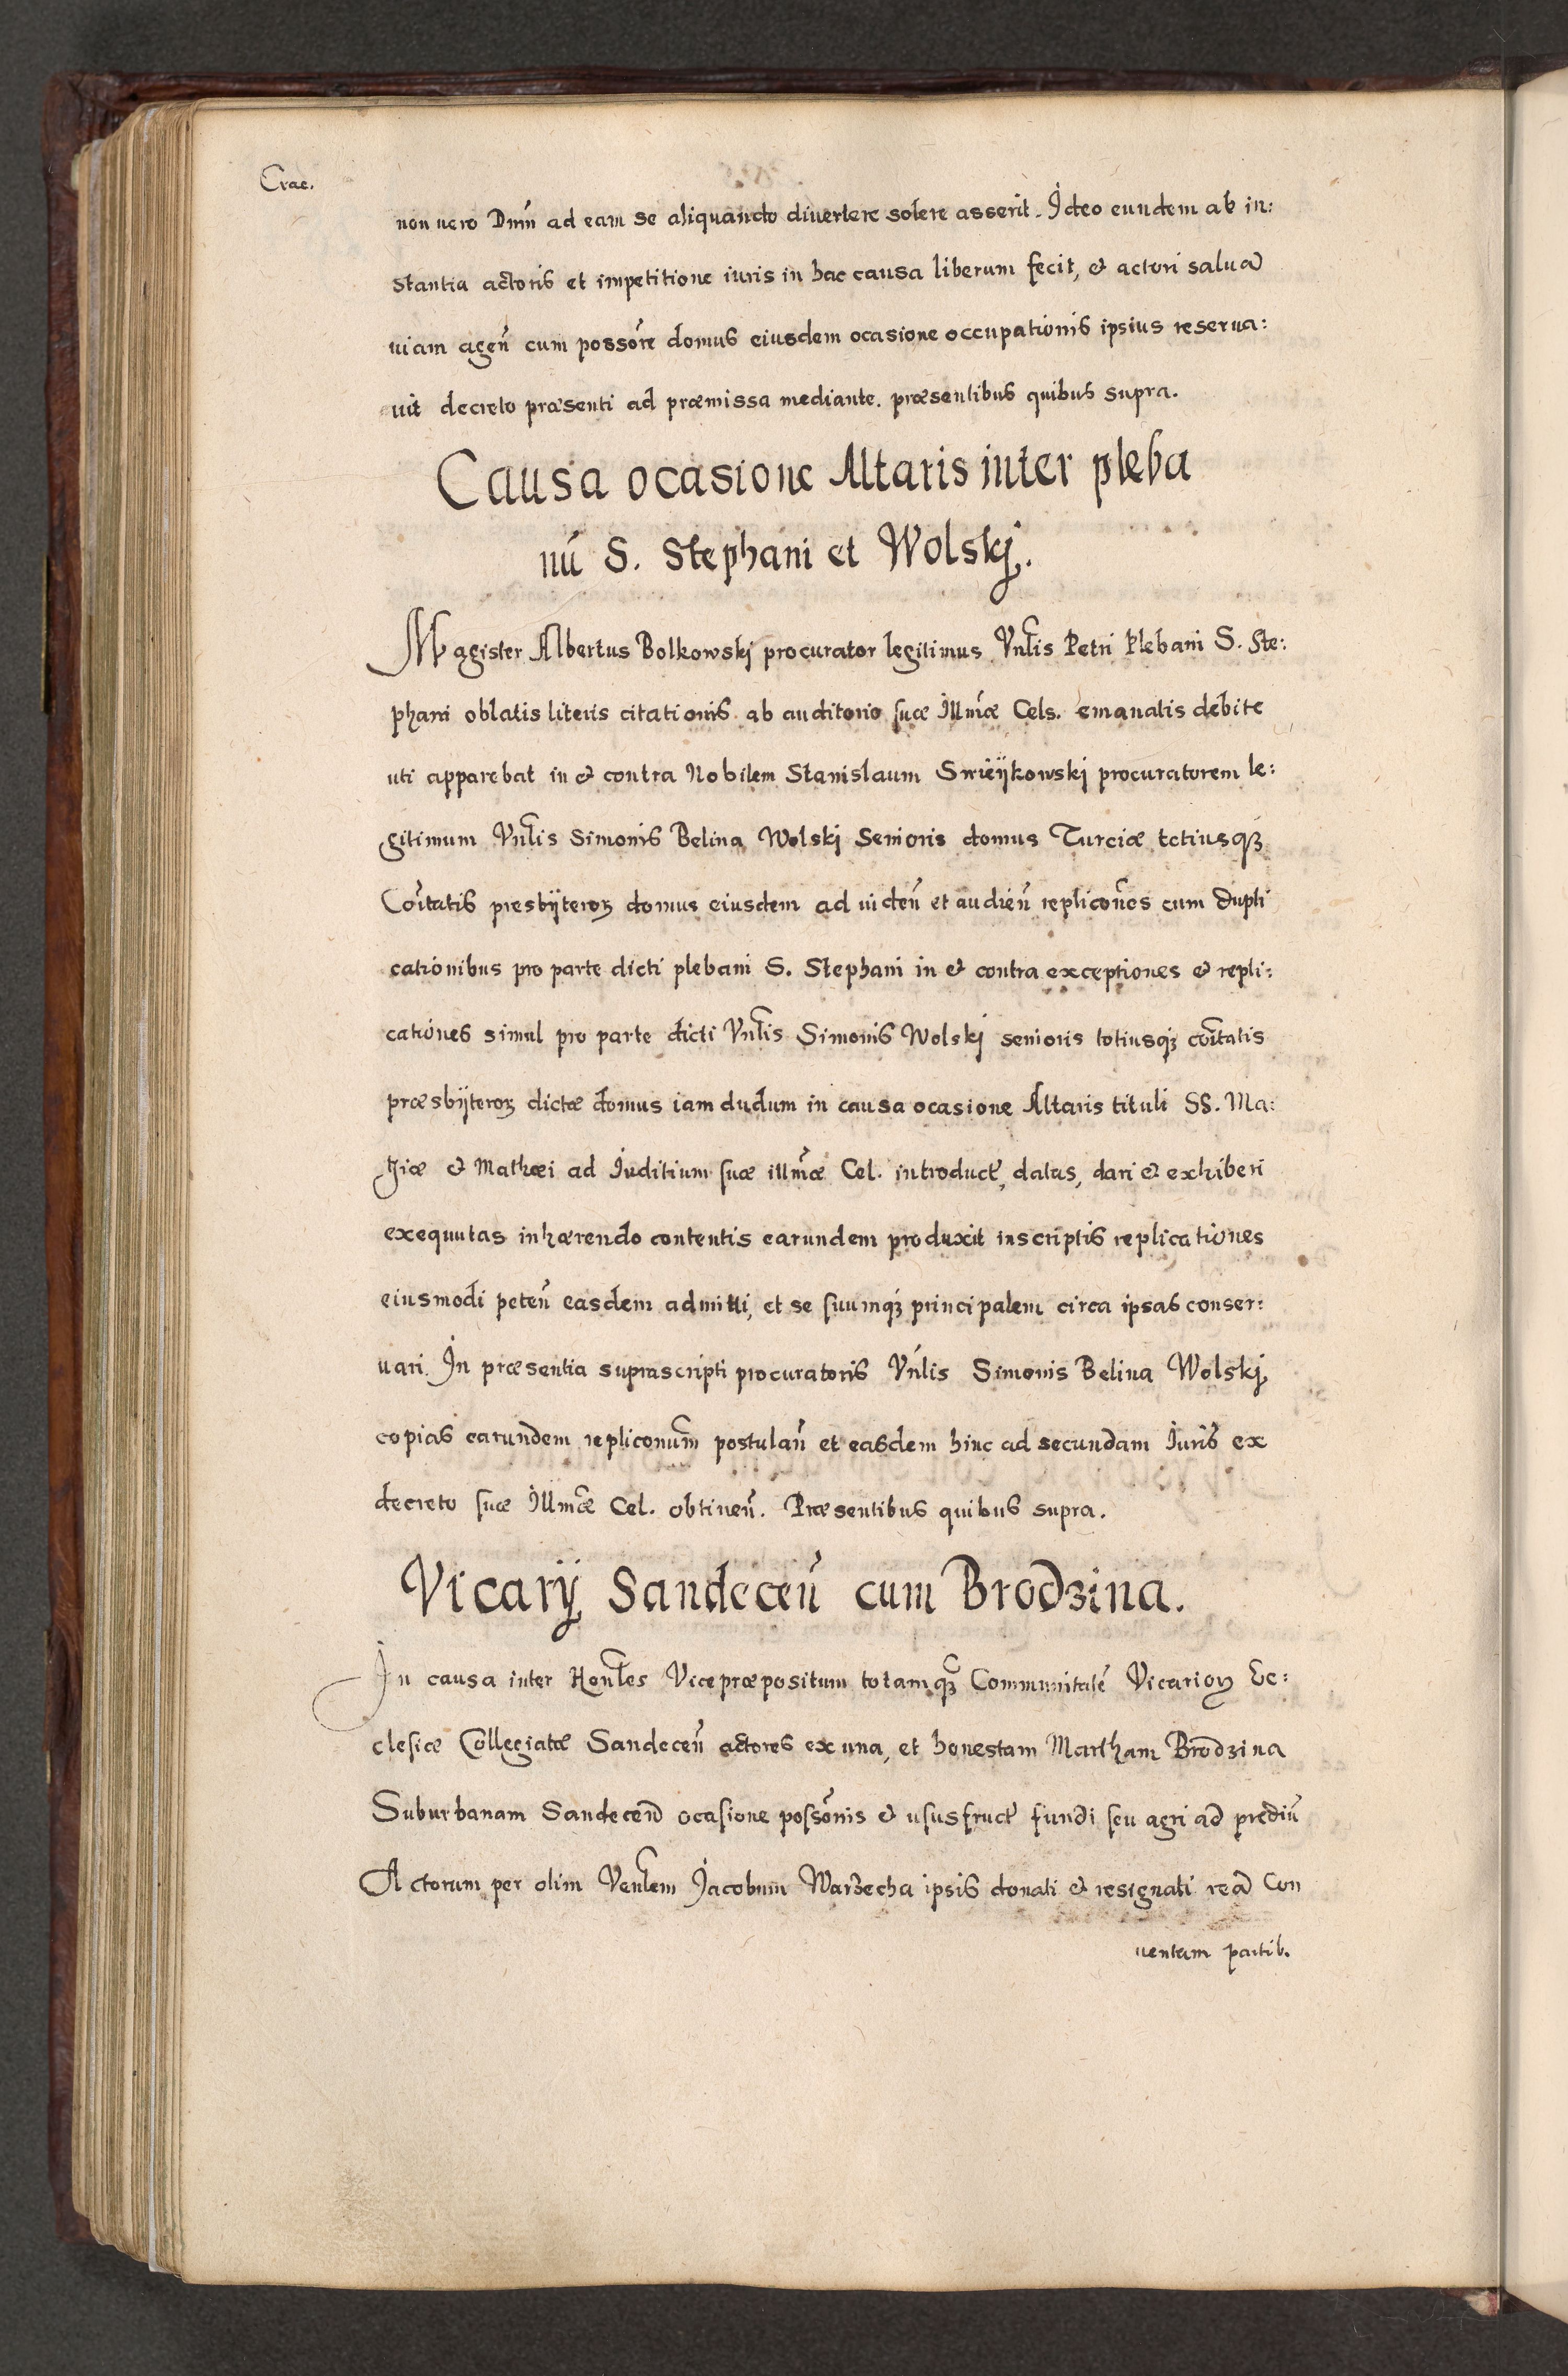 Crac.
non uero Dnm̃ ad eam se aliquando diuertere solere asserit. Ideo eundem ab in:
stantia actoris et impetitione iuris in hac causa liberum fecit, & actori saluā
uiam ageñ cum possõre domus eiusdem ocasione occupationis ipsius reserua:
uit decreto præsenti ad præmissa mediante. præsentibus quibus supra.
Causa ocasione Altaris inter pleba
nũ S. Stephani et Wolskj.
Magister Albertus Bolkowskj procurator legitimus Vnl̃is Petri Plebani S. Ste:
phani oblatis literis citationis ab auditorio suæ Illm̃æ Cels. emanatis debite
uti apparebat in & contra Nobilem Stanislaum Swieÿkowskj procuratorem le:
gitimum Vnl̃is Simonis Belina Wolskj Senioris domus Turciæ totiusqꝫ
Cõitatis presbÿteroꝝ domus eiusdem ad uideñ et audieñ replicões cum dupli
cationibus pro parte dicti plebani S. Stephani in & contra exceptiones & repli:
cationes simul pro parte dicti Vnl̃is Simonis Wolskj senioris totiusqꝫ cõitatis
præsbÿteroꝝ dictæ domus iam dudum in causa ocasione Altaris tituli SS. Ma:
tjiæ & Mathæi ad Iuditium suæ illm̃æ Cel. introduct̛, datas, dari & exhiberi
exequutas inhærendo contentis earundem produxit inscriptis replicationes
eiusmodi peteñ easdem admitti, et se suumqꝫ principalem circa ipsas conser:
uari. In præsentia suprascripti procuratoris Vnl̃is Simonis Belina Wolskj
copias earundem repliconũm postulañ et easdem hinc ad secundam Iuris ex
decreto suæ Illm̃æ Cel. obtineñ. Præsentibus quibus supra.
Vicarÿ Sandeceñ cum Brodzina.
In causa inter Honl̃es Vicepræpositum totamqꝫ Communitatẽ Vicarioꝝ Ec:
clesiæ Collegiatæ Sandeceñ actores ex una, et honestam Martham Brodzina
Suburbanam Sandeceñ ocasione possõnis & ususfruct̛ fundi seu agri ad prediũ
Actorum per olim Venl̃em Jacobum Warzecha ipsis donati & resignati reā Con
uentam partib.